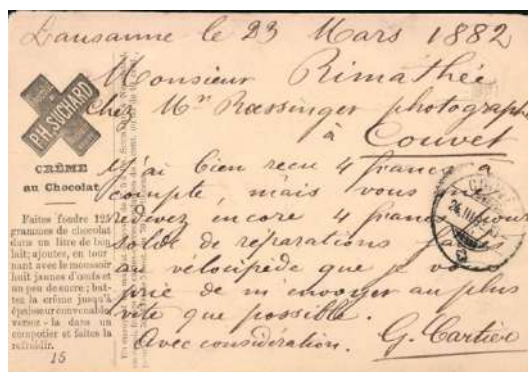 Lausanne le 23 Mars 1882
Monsieur Rimathée
Chez Mr Rœssinger photographe
à Couvet
J'ai bien reçu 4 francs à
compte, mais vous me
redevez encore 4 francs pour
solde de réparations faites
au vélocipède que je vous
prie de m'envoyer au plus
vite que possible.
Avec considération. G. Cartier
PH. SUCHARD
CRÈME
au Chocolat
Faites fondre 125
grammes de chocolat
dans un litre de bon
lait; ajoutez, en tour
nant avec le moussoir
huit jaunes d'œufs et
un peu de sucre; bat-
tez la crème jusqu'à
épaisseur convenable
versez-la dans un
compotier et faites la
refroidir.
15